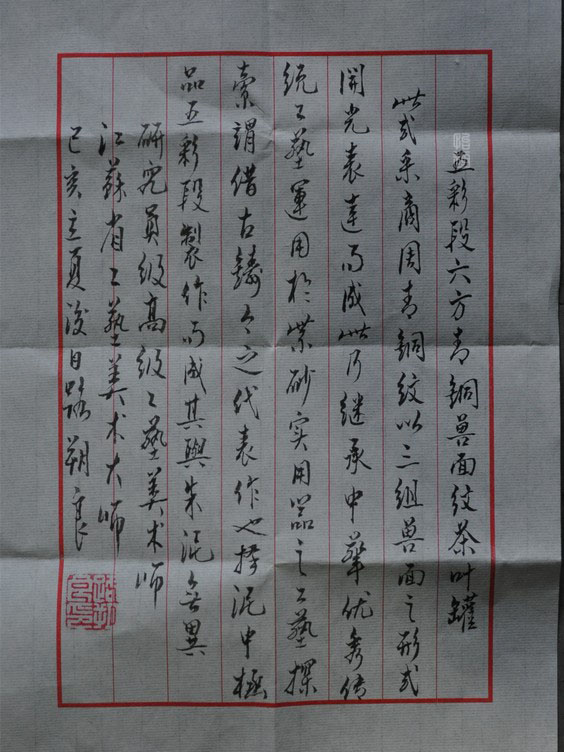 五彩段六方青銅兽面纹茶叶罐
此式采商周青銅纹以三组兽面之形式
開光表達而成此乃继承中華优秀传
统工藝運用於紫砂实用器之工藝探
索謂借古鑄今之代表作也擇泥中極
品五彩段製作而成其與朱泥無異
研究員级高级工藝美术师
江蘇省工藝美术大师
己亥立夏後日路朔良